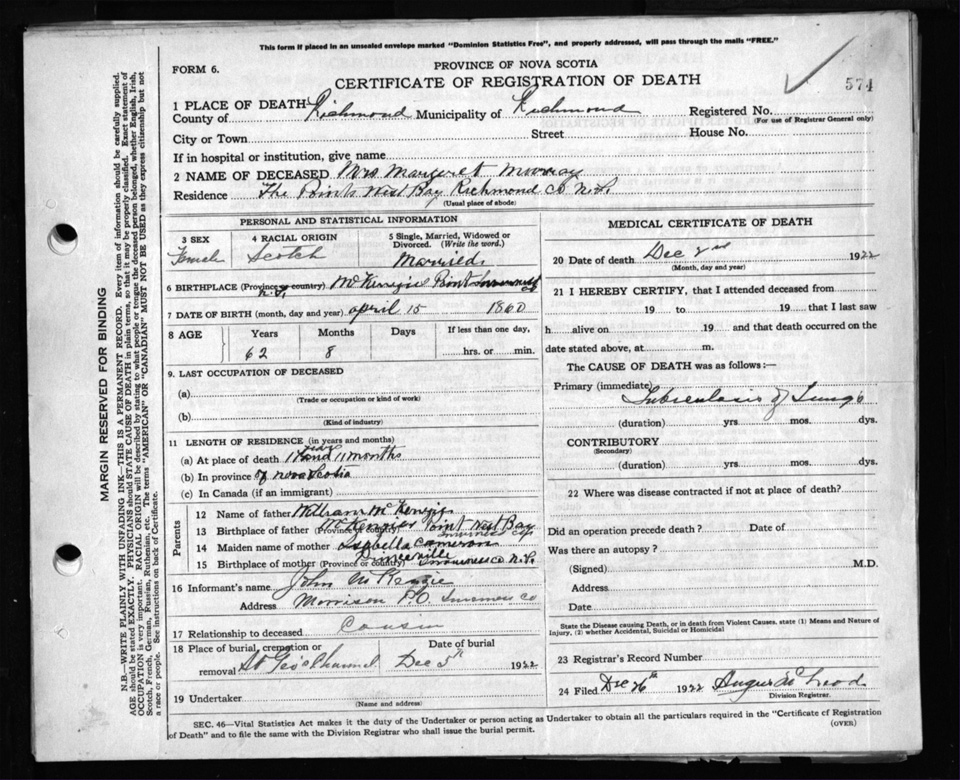 This form if placed in an unsealed envelope marked "Dominion Statistics Free", and properly addressed, will pass through the mails "FREE."
FORM 6.
PROVINCE OF NOVA SCOTIA
CERTIFICATE OF REGISTRATION OF DEATH
574
1 PLACE OF DEATH
County of Richmond Municipality of Richmond Registered No.
(For use of Registrar General only)
City or Town Street House No.
If in hospital or institution, give name
2 NAME OF DECEASED Mrs Margaret Murray
Residence The Points West Bay Richmond Co N.S.
(Usual place of abode)
PERSONAL AND STATISTICAL INFORMATION
3 SEX 4 RACIAL ORIGIN 5 Single, Married, Widowed or Divorced. (Write the word.)
Female Scotch Married.
6 BIRTHPLACE (Province or country) McKenzie Point Inverness Co
N.S.
7 DATE OF BIRTH (month, day and year) april 15 1860
8 AGE Years Months Days If less than one day,
62 8 hrs. or min.
9. LAST OCCUPATION OF DECEASED
(a)
(Trade or occupation or kind of work)
(b)
(Kind of industry)
11 LENGTH OF RESIDENCE (in years and months)
(a) At place of death 11 and 11 months
(b) In province of nova Scotia
(c) In Canada (if an immigrant)
Parents
12 Name of father William McKenzie
13 Birthplace of father (Province or country) McKenzies Point West Bay
Inverness Co.
14 Maiden name of mother Isabella Cameron
15 Birthplace of mother (Province or country) Inverness Co N.S.
16 Informant's name John McKenzie
Address Morrison P.O. Inverness Co
17 Relationship to deceased Cousin
18 Place of burial, cremation or removal St Geo's Channel Date of burial Dec 5th 1922
19 Undertaker
(Name and address)
MEDICAL CERTIFICATE OF DEATH
20 Date of death Dec 2nd 1922
(Month, day and year)
21 I HEREBY CERTIFY, that I attended deceased from
19 to 19 that I last saw
h alive on 19 and that death occurred on the
date stated above, at m.
The CAUSE OF DEATH was as follows:—
Primary (immediate) Tuberculosis of Lungs
(duration) yrs. mos. dys.
CONTRIBUTORY
(Secondary)
(duration) yrs. mos. dys.
22 Where was disease contracted if not at place of death?
Did an operation precede death? Date of
Was there an autopsy?
(Signed) M.D.
Address
Date
State the Disease causing Death, or in death from Violent Causes, state (1) Means and Nature of Injury, (2) whether Accidental, Suicidal or Homicidal
23 Registrar's Record Number
24 Filed Dec 26th 1922 Angus McLeod
Division Registrar.
SEC. 46—Vital Statistics Act makes it the duty of the Undertaker or person acting as Undertaker to obtain all the particulars required in the "Certificate of Registration of Death" and to file the same with the Division Registrar who shall issue the burial permit.
(OVER)
MARGIN RESERVED FOR BINDING
N.B.—WRITE PLAINLY WITH UNFADING INK—THIS IS A PERMANENT RECORD. Every item of information should be carefully supplied.
AGE should be stated EXACTLY. PHYSICIANS should STATE CAUSE OF DEATH in plain terms, so that it may be properly classified. Exact statement of
OCCUPATION is very important. RACIAL ORIGIN will be described by stating to what people or tongue the deceased person belonged, whether English, Irish,
Scotch, French, German, Russian, Ruthenian, etc. The terms "AMERICAN" OR "CANADIAN" MUST NOT BE USED as they express citizenship but not
a race or people. See instructions on back of Certificate.